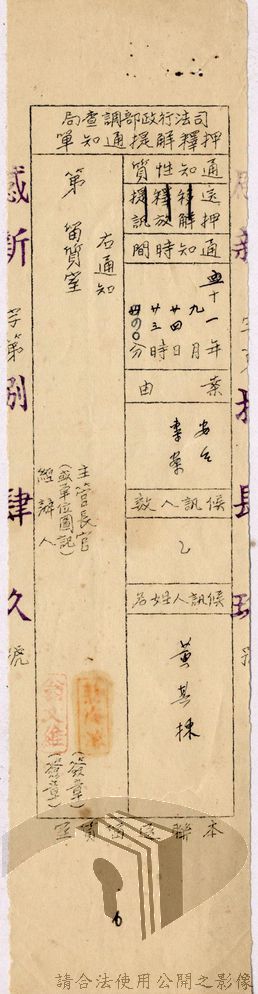 司法行政部調查局
押釋解提通知單
通知性質
還押
釋解
釋放
提訊
通知時間
五十一年
九月
廿四日
廿三時
四〇分
案由
安台
專案
候訊人數
乙
候訊人姓名
黃其棟
右通知
第 留質室
主管長官
(或單位圖記)
經辦人
(簽章)
(簽章)
本聯送留質室
感新
字第
捌
肆
玖
號
請合法使用公開之影像